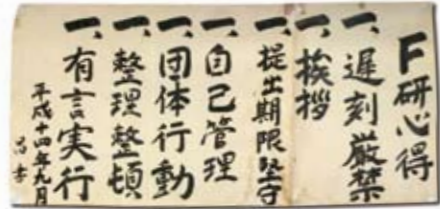 F研心得
一、遅刻厳禁
一、挨拶
一、提出期限堅守
一、自己管理
一、団体行動
一、整理整頓
一、有言実行
平成十四年九月